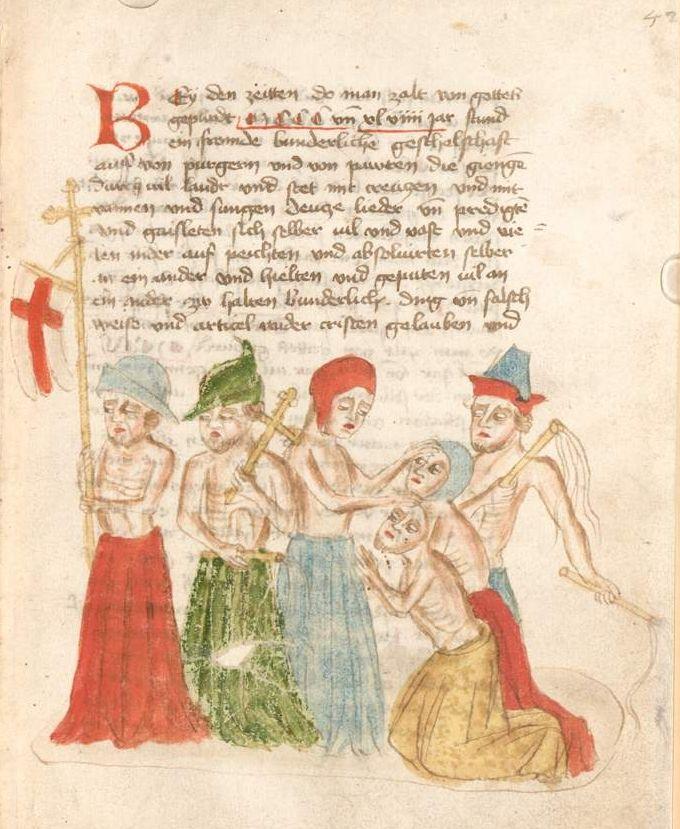 42
Bey den zeitten do man zalt von gottes
gepurdt MCCC vñ xl viiii jar stund
ein fremde bunderliche geschelschaft
auff von purgern vnd von pawren die gienge
durch vil landt vnd stet mit creutzen vnd mit
vannen vnd sungen deucze lieder vñ predigtē
vnd gaisleten sich selber vil vnd vast vnd vie=
len nider auf peichten vnd absoluirten selber
an ein ander vnd hielten vnd geputen vil an
ein ander zw halten bunderlich ding von falsch
weise vnd articel wider cristen gelauben vnd